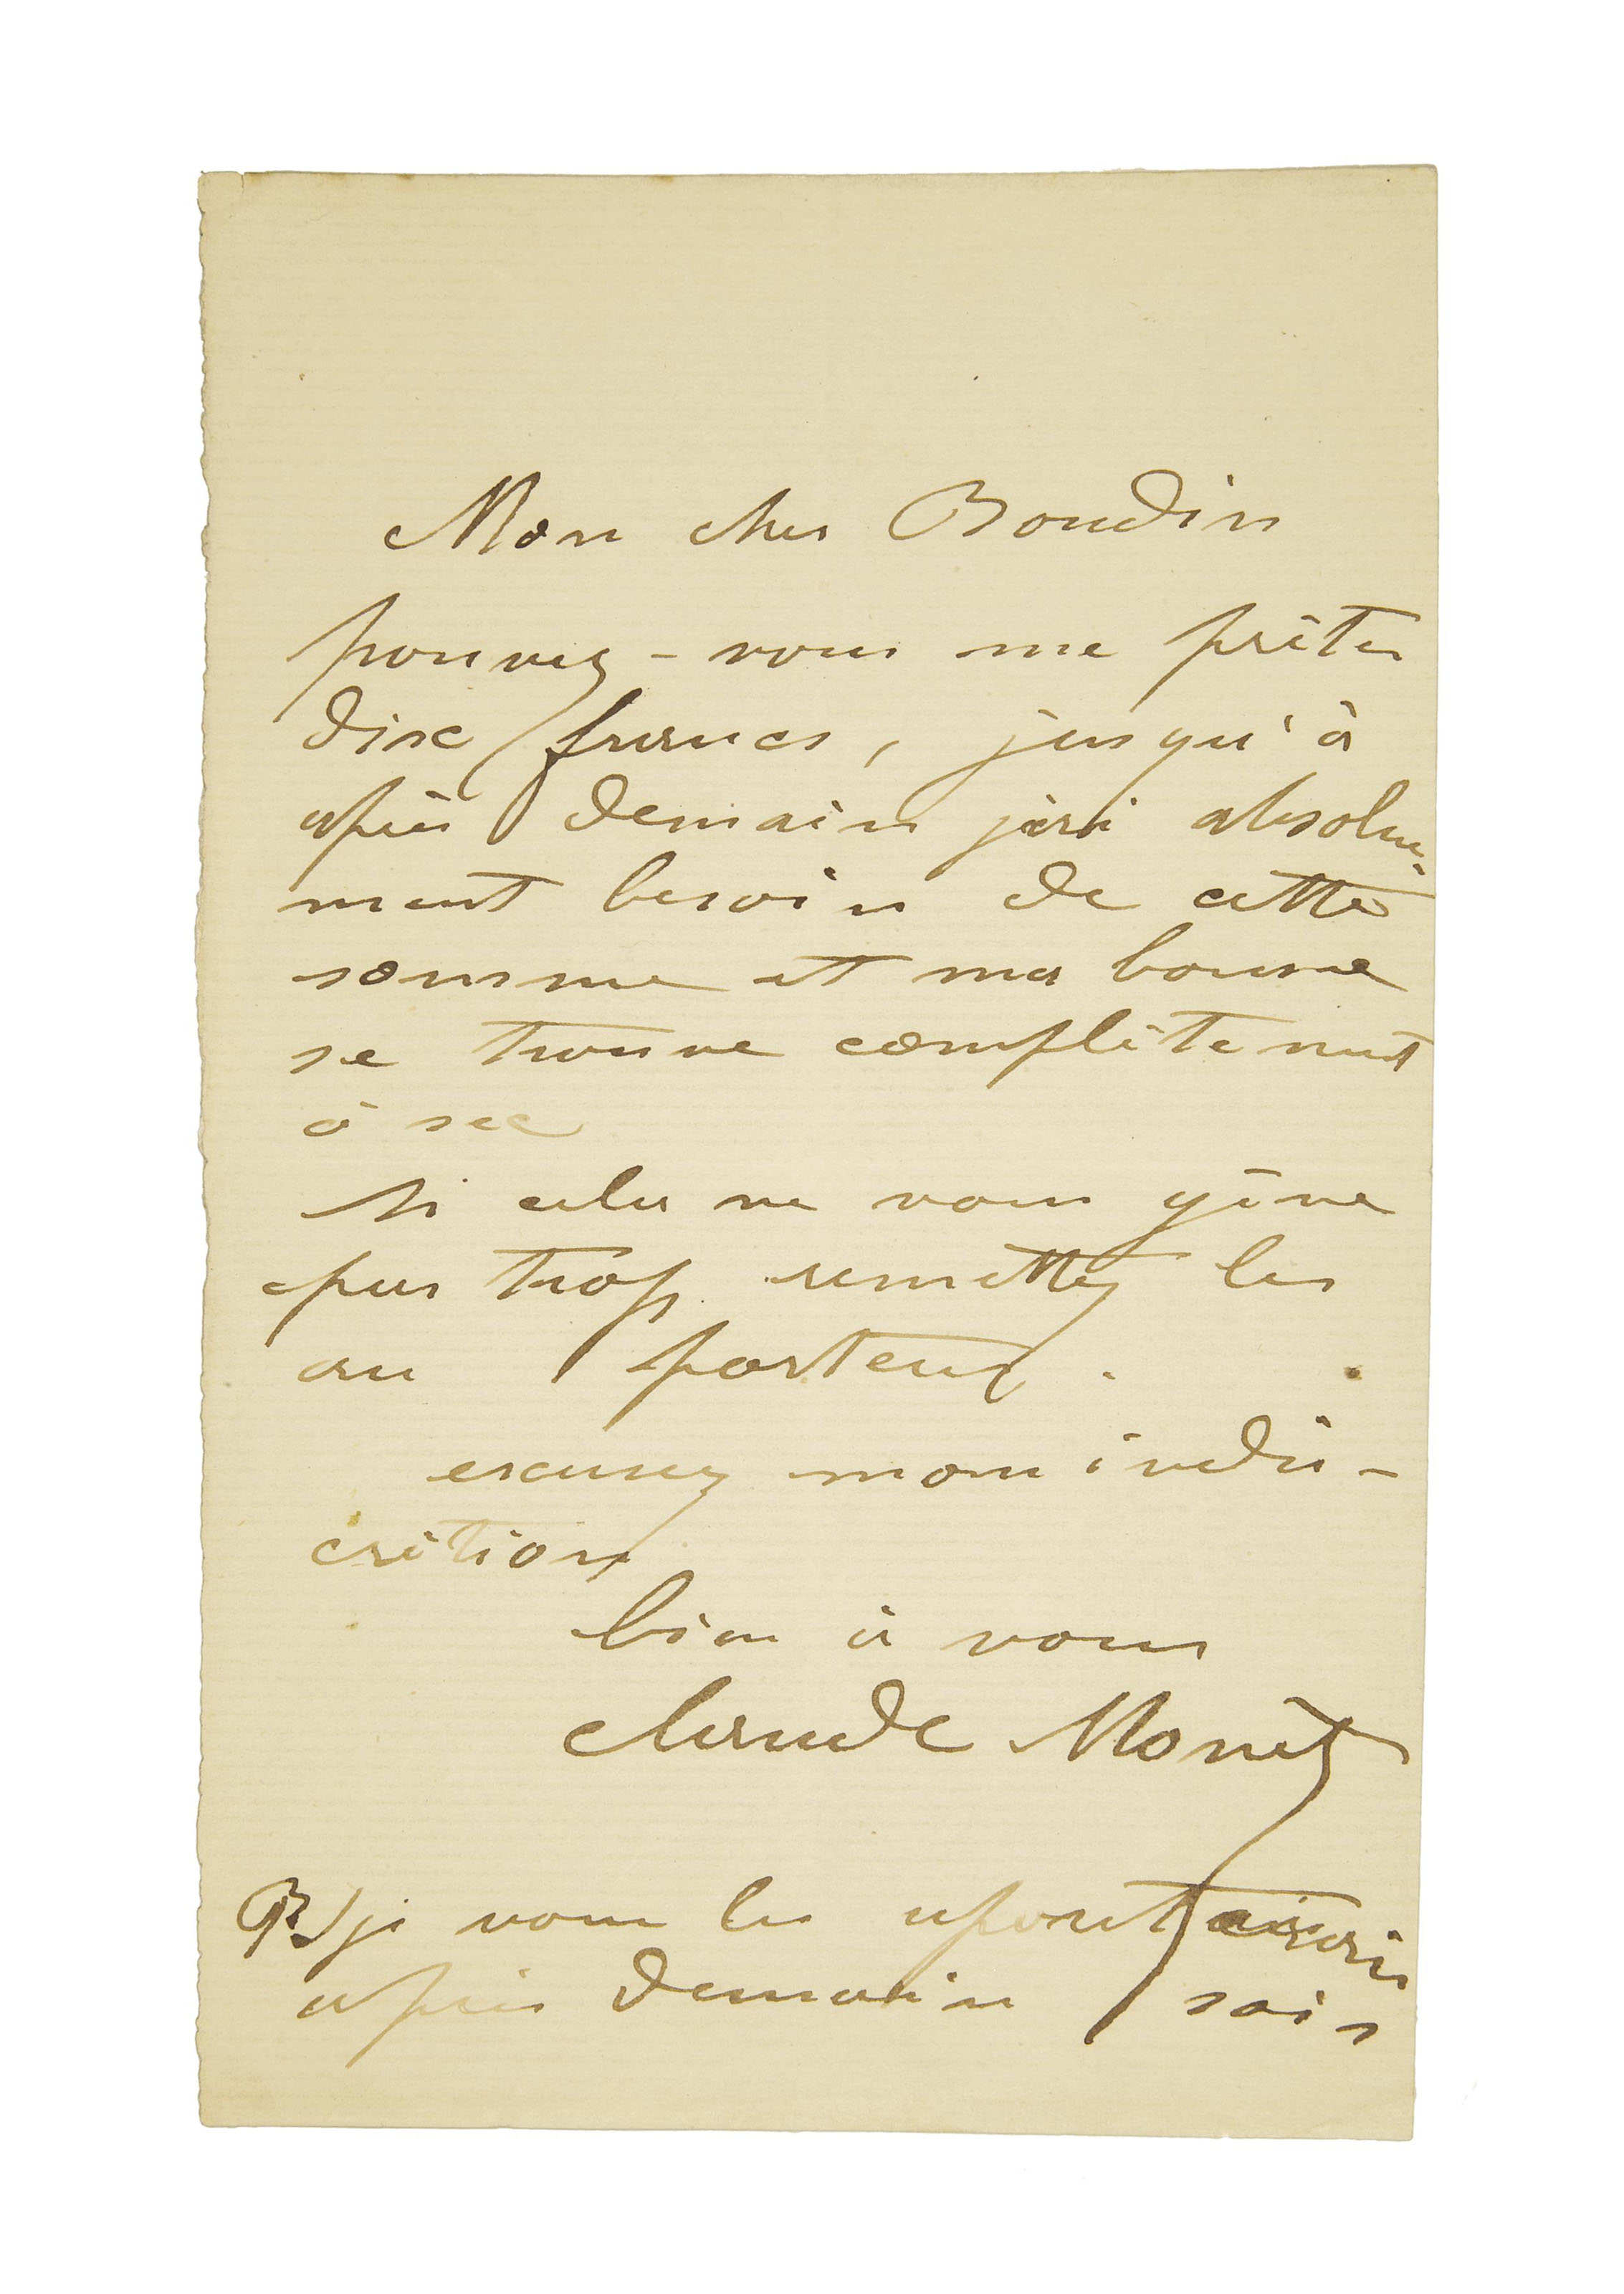 Mon cher Boudin
pouvez-vous me prêter
dix francs, jusqu'à
après demain j'ai absolu-
ment besoin de cette
somme et ma bourse
se trouve complètement
à sec
Si cela ne vous gêne
pas trop remettez les
au porteur.
excusez mon indis-
crétion
bien à vous
Claude Monet
PS) je vous les
après demain soir